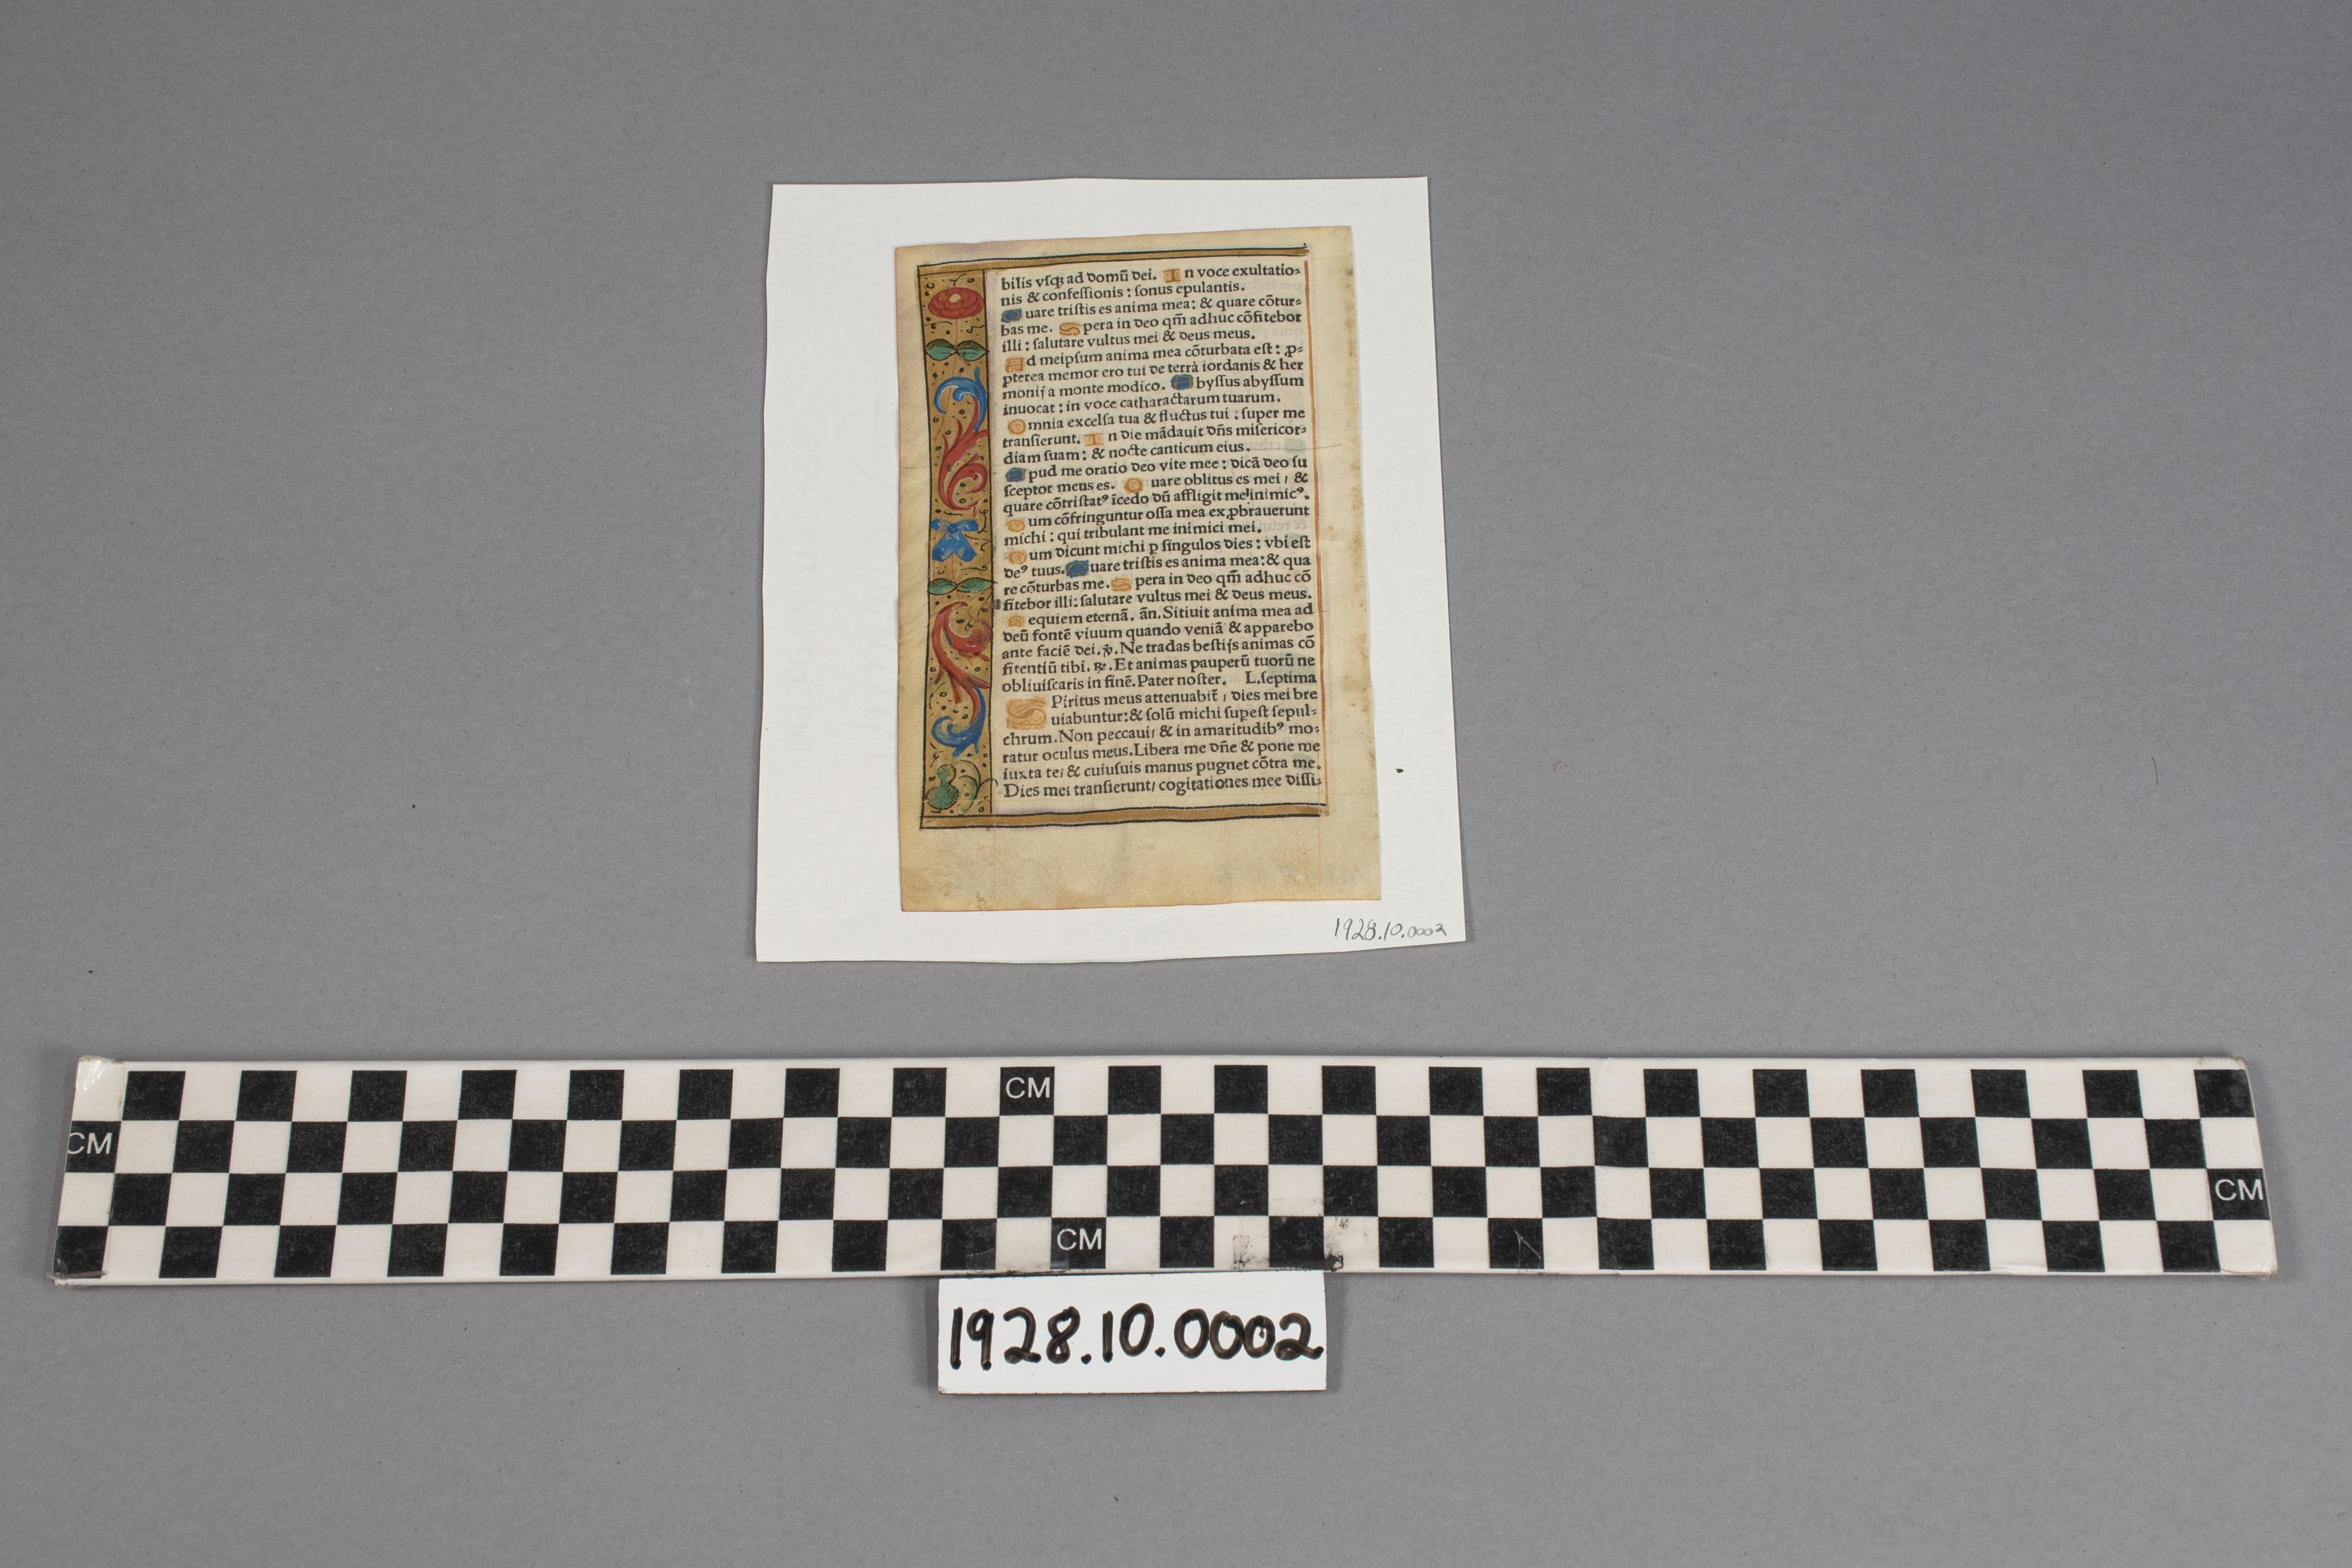 bilis vsqꝫ ad domũ dei. In voce exultatio⸗
nis & confeſſionis : ſonus epulantis.
Quare triſtis es anima mea: & quare cõtur⸗
bas me. Spera in deo qm̃ adhuc cõfitebor
illi : ſalutare vultus mei & deus meus.
Ad meipſum anima mea cõturbata eſt : ꝓ⸗
pterea memor ero tui de terra iordanis & her
monij a monte modico. Abyſſus abyſſum
inuocat : in voce catharactarum tuarum.
Omnia excelſa tua & fluctus tui : ſuper me
tranſierunt. In die mãdauit dñs miſericor⸗
diam ſuam: & nocte canticum eius.
Apud me oratio deo vite mee : dicã deo ſu
ſceptor meus es. Quare oblitus es mei / &
quare cõtriſtatꝰ ĩcedo dũ affligit me inimicꝰ.
Dum cõfringuntur oſſa mea exꝓbrauerunt
michi : qui tribulant me inimici mei.
Dum dicunt michi p ſingulos dies : vbi eſt
deꝰ tuus. Quare triſtis es anima mea: & qua
re cõturbas me. Spera in deo qm̃ adhuc cõ
fitebor illi: ſalutare vultus mei & deus meus.
Requiem eternã. ãn. Sitiuit anima mea ad
deũ fontẽ viuum quando veniã & apparebo
ante faciẽ dei. ℣. Ne tradas beſtijs animas cõ
fitentiũ tibi. ℟. Et animas pauperũ tuorũ ne
obliuiſcaris in finẽ. Pater noſter. L. ſeptima
SPiritus meus attenuabit̃ / dies mei bre
uiabuntur: & ſolũ michi ſupeſt ſepul⸗
chrum. Non peccaui/ & in amaritudibꝰ mo⸗
ratur oculus meus. Libera me dñe & pone me
iuxta te/ & cuiuſuis manus pugnet cõtra me.
Dies mei tranſierunt/ cogitationes mee diſſi⸗
1928.10.0002
CM
CM
CM
CM
1928.10.0002